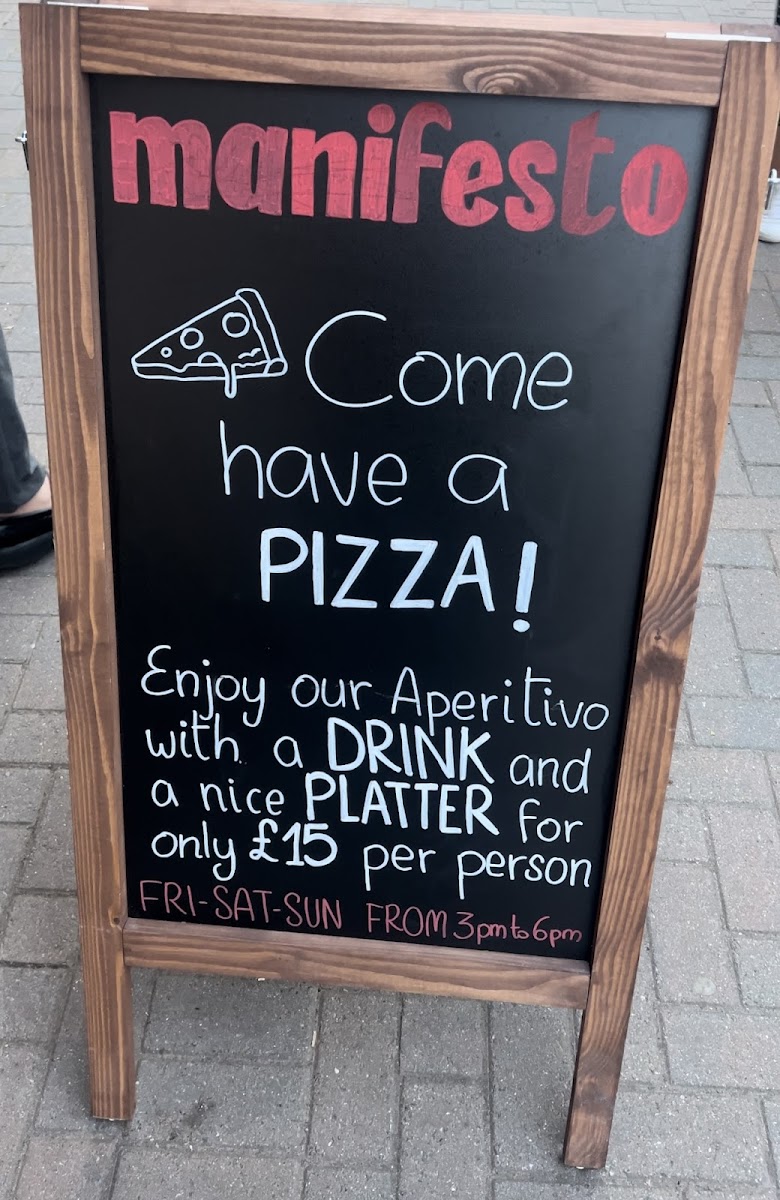 manifesto
Come
have a
PIZZA!
Enjoy our Aperitivo
with a DRINK and
a nice PLATTER for
only £15 per person
FRI-SAT-SUN FROM 3pm to 6pm